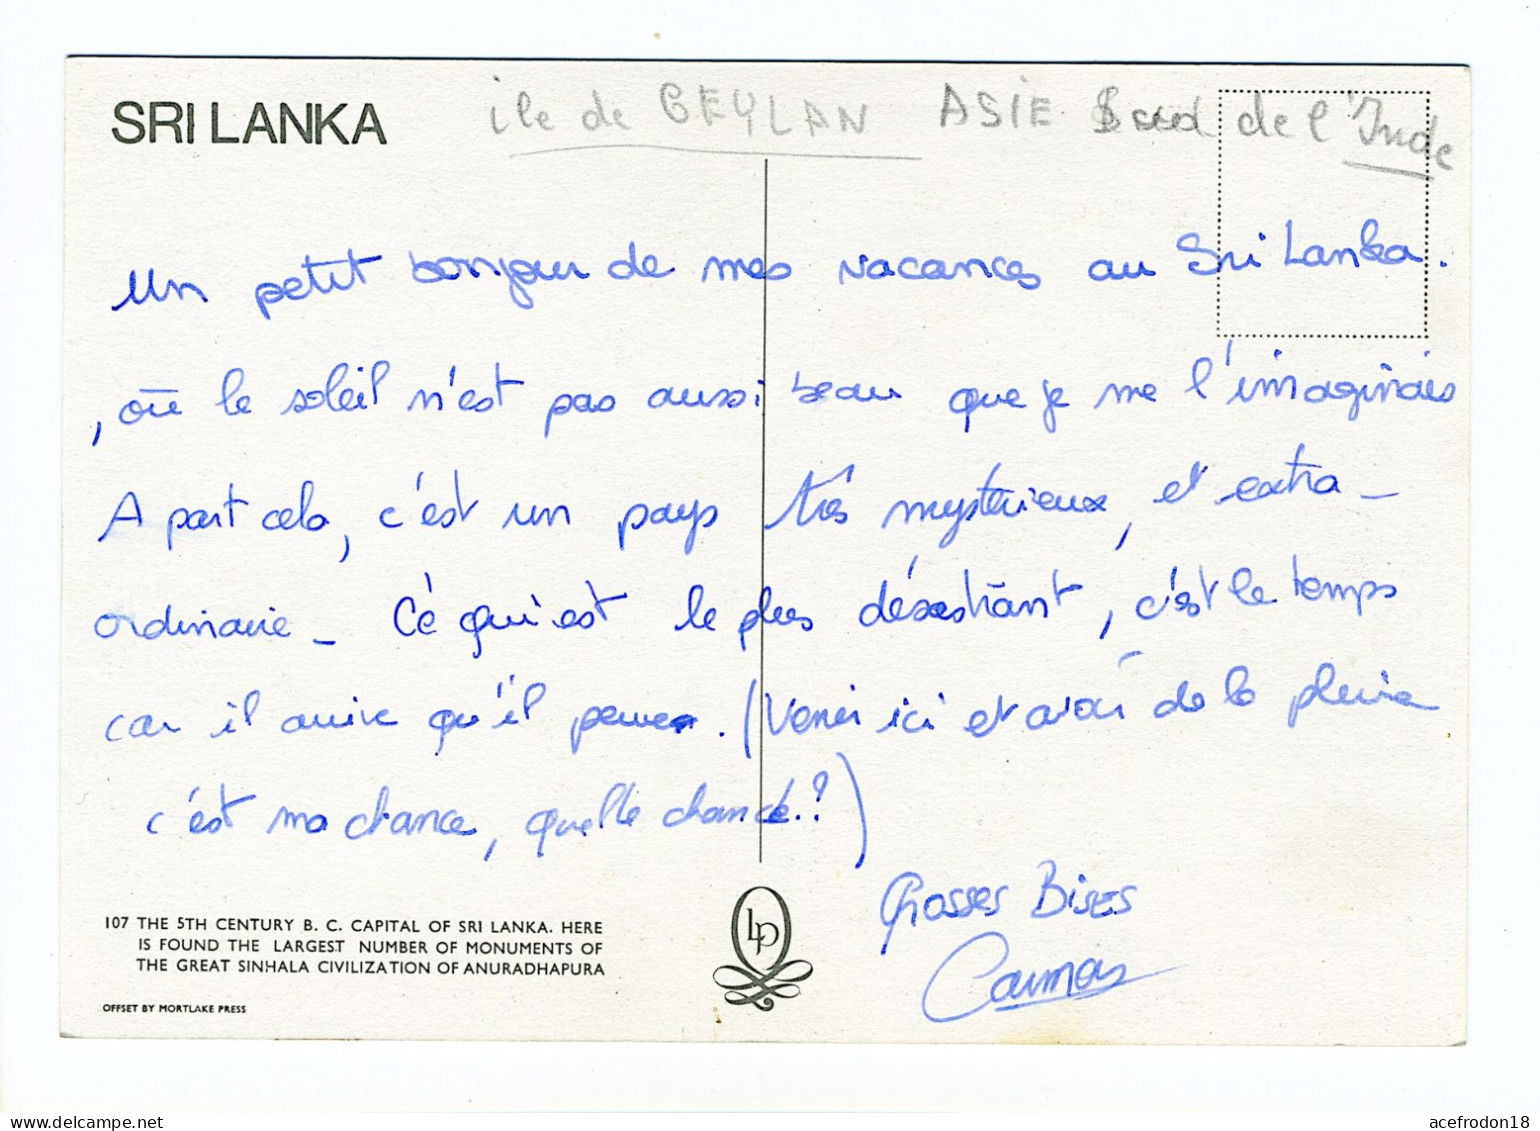 SRI LANKA
ile de CEYLAN ASIE Sud de l'Inde
Un petit bonjour de mes vacances au Sri Lanka.
, où le soleil n'est pas aussi beau que je me l'imaginais
A part cela, c'est un pays très mystérieux, et extra-
ordinaire - Ce qui est le plus désastrant, c'est le temps
car il arrive qu'il peuve. (Venir ici et avoir de la pluie
c'est ma chance, quelle chance!?)
Grosses Bises
107 THE 5TH CENTURY B. C. CAPITAL OF SRI LANKA. HERE
IS FOUND THE LARGEST NUMBER OF MONUMENTS OF
THE GREAT SINHALA CIVILIZATION OF ANURADHAPURA
OFFSET BY MORTLAKE PRESS
LP
www.delcampe.net
acefrodon18